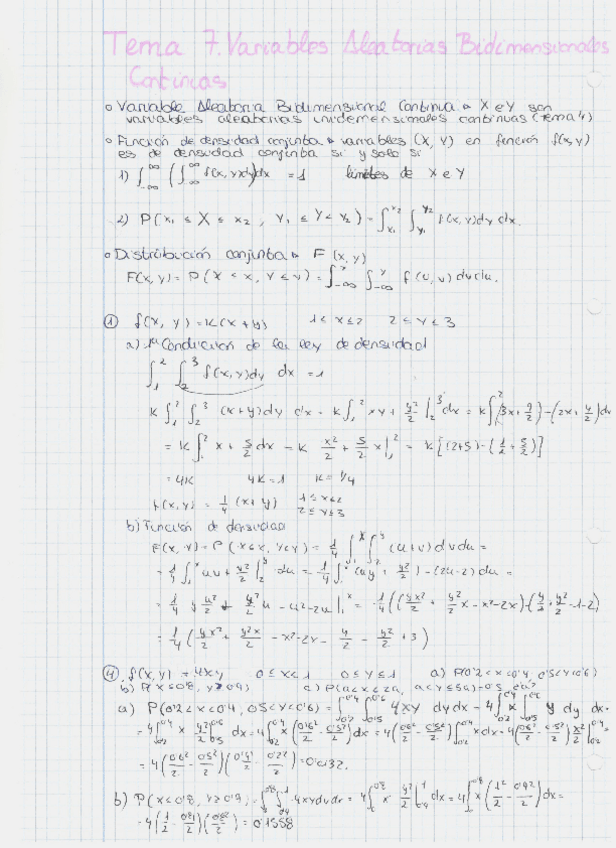 Tema 7. Variables Aleatorias Bidimensionales
Continuas
Variable Aleatoria Bidimensional Continua → X e Y son
variables aleatorias unidimensionales continuas (Tema 4)
Función de densidad conjunta → variables (X, Y) en función f(x,y)
es de densidad conjunta si y solo si
1) ∫_{-∞}^{∞} (∫_{-∞}^{∞} f(x,y)dy)dx = 1 límites de X e Y
2) P(x₁ ≤ X ≤ x₂, y₁ ≤ Y ≤ y₂) = ∫_{x₁}^{x₂} ∫_{y₁}^{y₂} f(x,y)dy dx.
Distribución conjunta → F(x,y)
F(x,y) = P(X < x, Y ≤ y) = ∫_{-∞}^{x} ∫_{-∞}^{y} f(u,v) dv du.
① f(x,y) = K(x+y) 1 < x ≤ 2 2 ≤ y ≤ 3
a) 1ª Condición de la ley de densidad
∫_1^2 ∫_2^3 f(x,y)dy dx = 1
K ∫_1^2 ∫_2^3 (x+y)dy dx = K ∫_1^2 xy + y²/2 |_2^3 dx = K ∫_1^2 (3x + 9/2) - (2x + 4/2) dx
= K ∫_1^2 x + 5/2 dx = K x²/2 + 5/2 x |_1^2 = K [(2+5) - (1/2 + 5/2)]
= 4K 4K = 1 K = 1/4
f(x,y) = 1/4 (x+y) 1 ≤ x ≤ 2
2 ≤ y ≤ 3
b) Función de densidad
F(x,y) = P(X ≤ x, Y ≤ y) = 1/4 ∫_1^x ∫_2^y (u+v) dv du =
= 1/4 ∫_1^x uv + v²/2 |_2^y du = 1/4 ∫_1^x (uy + y²/2) - (2u-2) du =
= 1/4 y u²/2 + y²/2 u - u² - 2u |_1^x = 1/4 ((yx²/2 + y²/2 x - x² - 2x) - (y/2 + y²/2 - 1 - 2)
= 1/4 (yx²/2 + y²x/2 - x² - 2x - y/2 - y²/2 + 3)
④ f(x,y) = 4xy 0 ≤ x < 1 0 ≤ y ≤ 1 a) P(0'2 < x < 0'4, 0'5 < y < 0'6)
b) P(x ≤ 0'8, y > 0'9)
a) P(0'2 < x < 0'4, 0'5 < y < 0'6) = ∫_{0'2}^{0'4} ∫_{0'5}^{0'6} 4xy dy dx = 4 ∫_{0'2}^{0'4} x ∫_{0'5}^{0'6} y dy dx =
= 4 ∫_{0'2}^{0'4} x y²/2 |_{0'5}^{0'6} dx = 4 ∫_{0'2}^{0'4} x (0'6²/2 - 0'5²/2) dx = 4 (0'6²/2 - 0'5²/2) ∫_{0'2}^{0'4} x dx = 4 (0'6²/2 - 0'5²/2) x²/2 |_{0'2}^{0'4} =
= 4 (0'6²/2 - 0'5²/2) (0'4²/2 - 0'2²/2) = 0'0132.